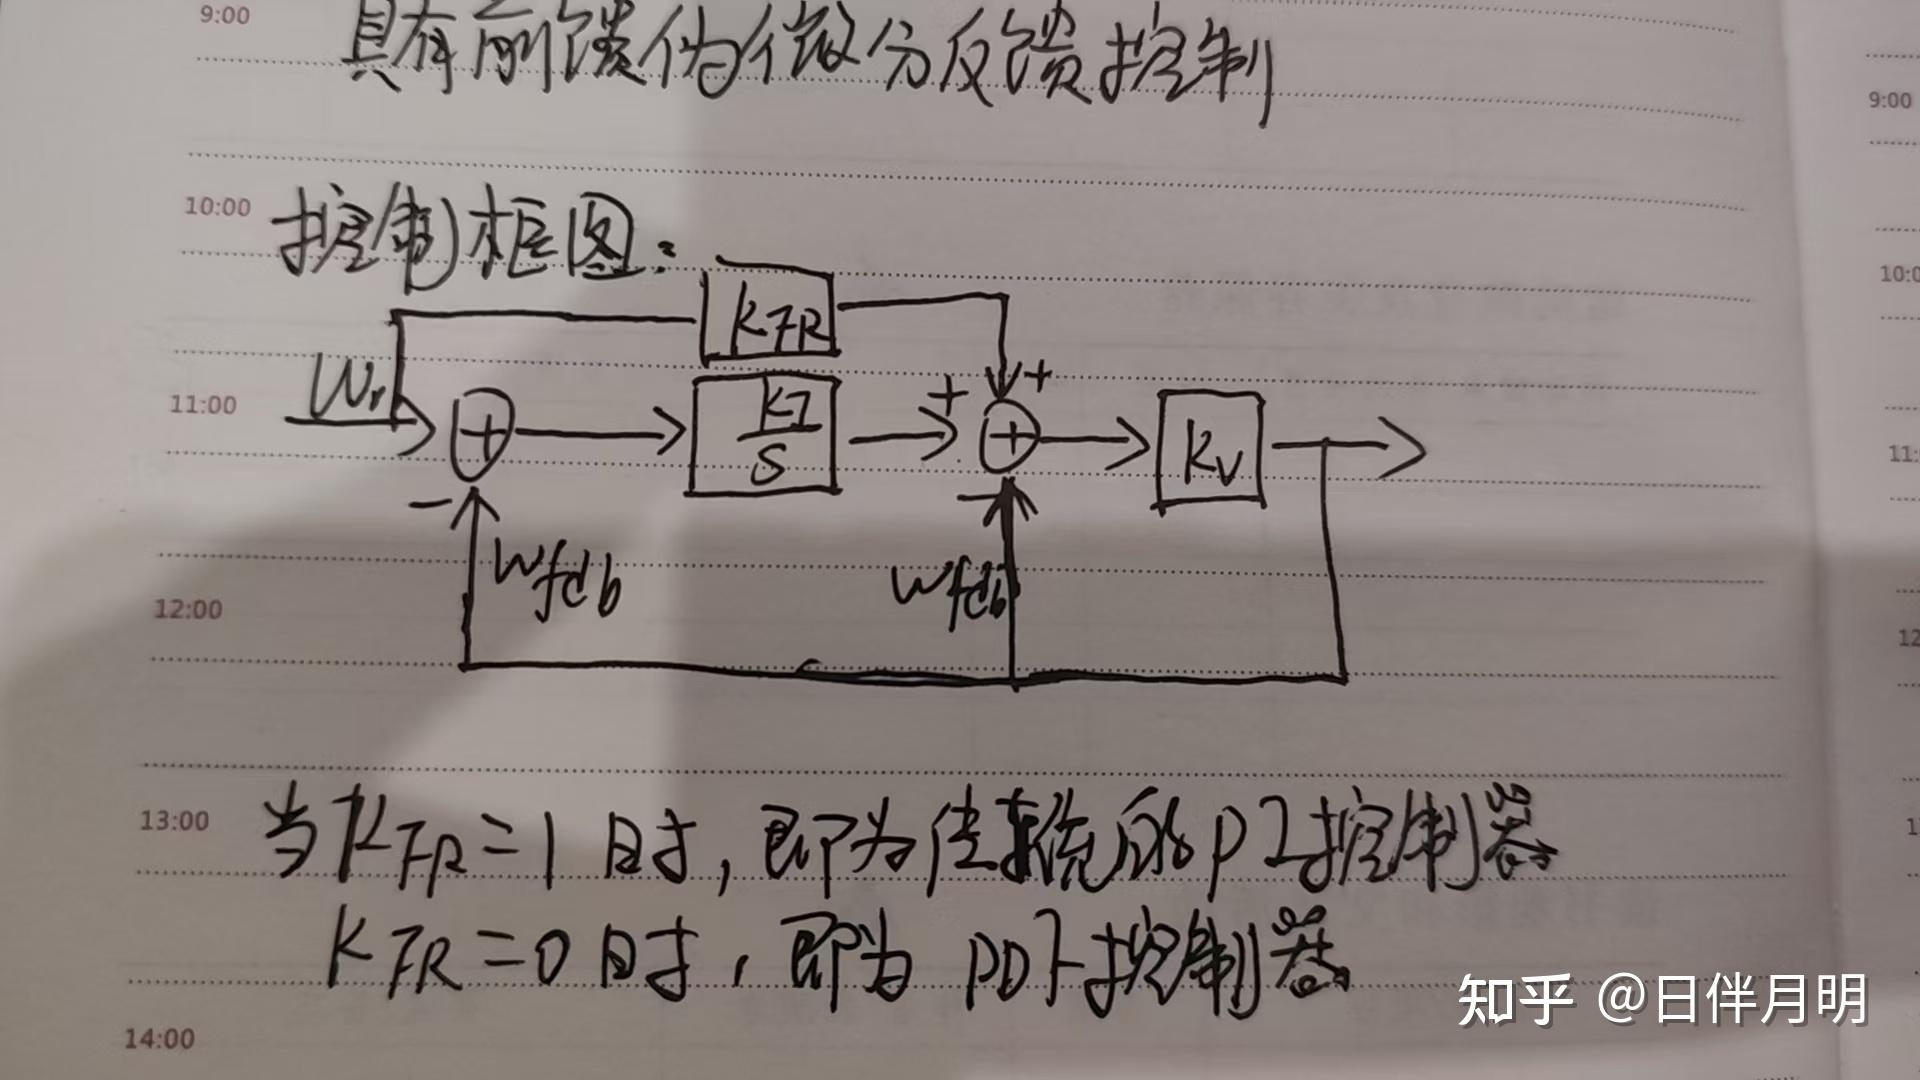 9:00
具有前馈伪微分反馈控制
9:00
10:00
控制框图:
10:0
KFR
Wr
11:00
KI
S
+
+
+
+
KV
11:
-
-
Wfdb
Wfdb
12:00
12
13:00
当KFR=1时,即为传统的PI控制器
1
KFR=0时,即为PDF控制器
知乎 @日伴月明
14:00